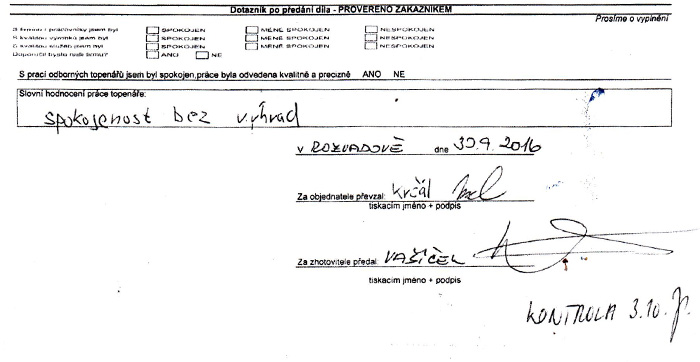 Dotazník po předání díla - PROVEŘENO ZÁKAZNÍKEM
Prosíme o vyplnění
SPOKOJEN MÉNĚ SPOKOJEN NESPOKOJEN
SPOKOJEN MÉNĚ SPOKOJEN NESPOKOJEN
SPOKOJEN MÉNĚ SPOKOJEN NESPOKOJEN
ANO NE
S prací odborných topenářů jsem byl spokojen,práce byla odvedena kvalitně a precizně ANO NE
Slovní hodnocení práce topenáře:
spokojenost bez výhrad
v ROZVADOVĚ dne 30.9.2016
Za objednatele převzal: Krčál
tiskacím jméno + podpis
Za zhotovitele předal: VAŠÍČEK
tiskacím jméno + podpis
KONTROLA 3.10.